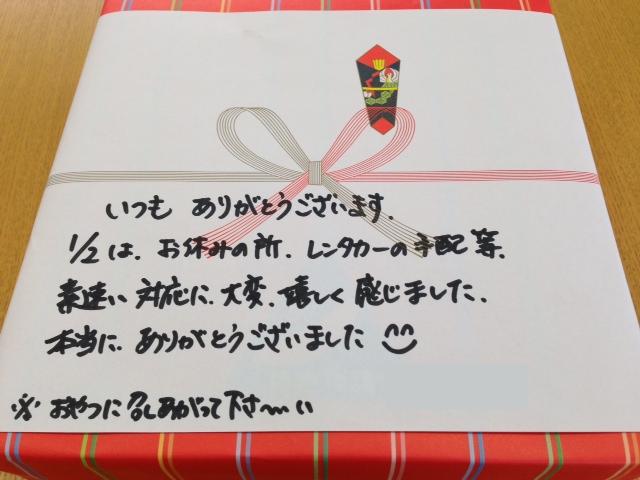 いつも ありがとうございます.
1/2は、お休みの所、レンタカーの手配等、
素速い対応に、大変、嬉しく感じました、
本当に、ありがとうございました ^^
※ おやつに召しあがって下さ〜い